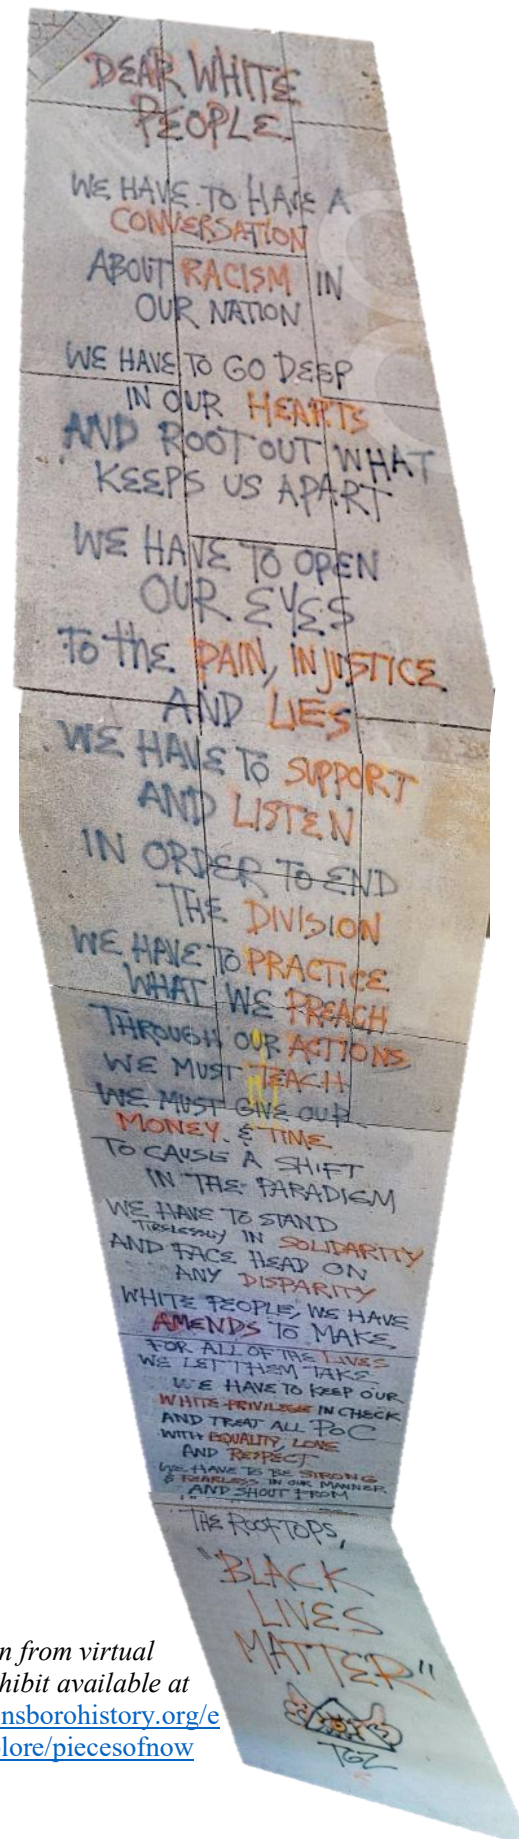 DEAR WHITE
PEOPLE
WE HAVE TO HAVE A
CONVERSATION
ABOUT RACISM IN
OUR NATION
WE HAVE TO GO DEEP
IN OUR HEARTS
AND ROOT OUT WHAT
KEEPS US APART
WE HAVE TO OPEN
OUR EYES
TO the PAIN, INJUSTICE
AND LIES
WE HAVE TO SUPPORT
AND LISTEN
IN ORDER TO END
THE DIVISION
WE HAVE TO PRACTICE
WHAT WE PREACH
THROUGH OUR ACTIONS
WE MUST TEACH
WE MUST GIVE OUR
MONEY & TIME
TO CAUSE A SHIFT
IN THE PARADIGM
WE HAVE TO STAND
TIRELESSLY IN SOLIDARITY
AND FACE HEAD ON
ANY DISPARITY
WHITE PEOPLE, WE HAVE
AMENDS TO MAKE
FOR ALL OF THE LIVES
WE LET THEM TAKE
WE HAVE TO KEEP OUR
WHITE PRIVILEGE IN CHECK
AND TREAT ALL POC
WITH EQUALITY, LOVE
AND RESPECT
WE HAVE TO BE STRONG
& FEARLESS IN OUR MANNER
AND SHOUT FROM
THE ROOFTOPS,
"BLACK
LIVES
MATTER"
TGZ
n from virtual
hibit available at
nsborohistory.org/e
lore/piecesofnow